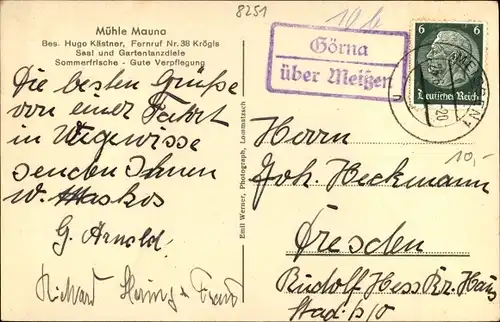 8251
10 h
Mühle Mauna
Bes. Hugo Kästner, Fernruf Nr. 38 Krögis
Saal und Gartentanzdiele
Sommerfrische - Gute Verpflegung
Görna
über Meißen
6 6
Deutsches Reich
10,-
Die besten Grüße
von einer Fahrt
in
senden Ihnen
W.
G. Arnold.
Richard
Emil Werner, Photograph, Lommatzsch
Herrn
Joh. Heckmann
Dresden
Rudolf Hess Br. Haus